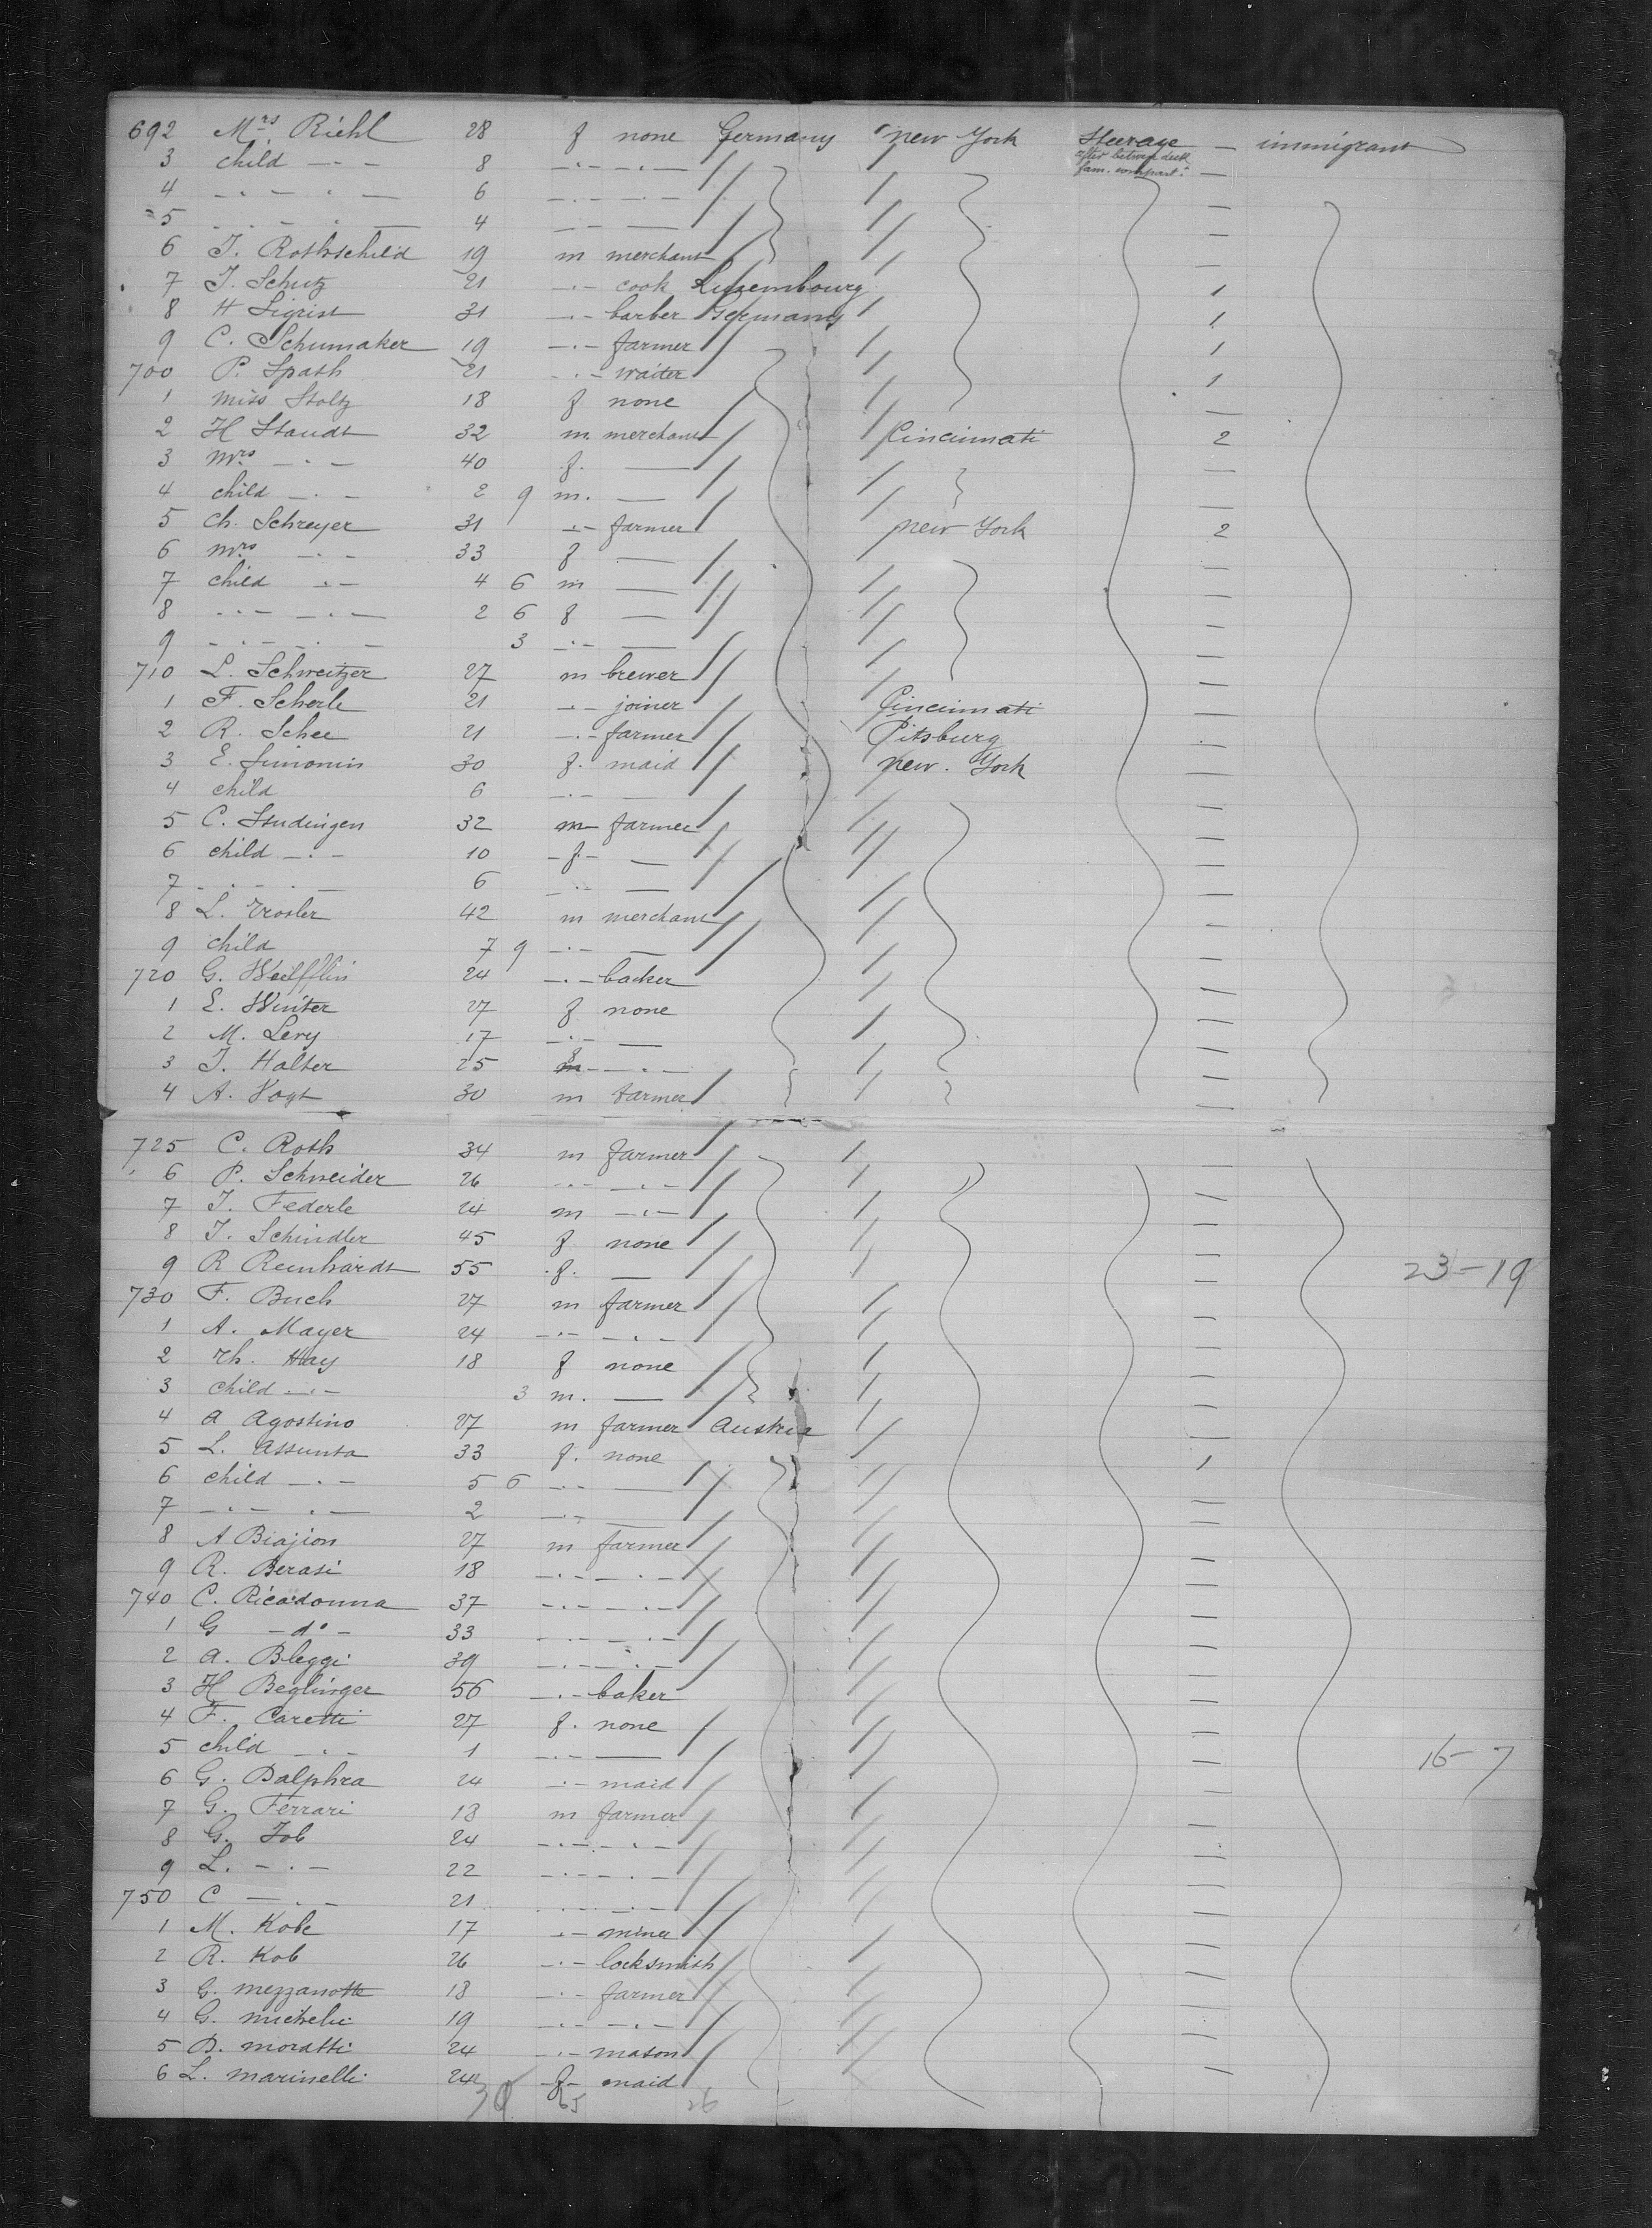 692 Mrs. Riehl 28 f none Germany New York Steerage — immigrant
after betwen deck
fam. compart.
3 child -·- 8 -·-·-
4 -·-·- 6 -·-·-
5 -·-·- 4 — —
6 J. Rothschild 19 m merchant
7 J. Schutz 21 -·- cook Luxembourg 1
8 H Sigrist 31 -·- barber Germany 1
9 C. Schumaker 19 -·- farmer 1
700 P. Spath 21 -·- waiter 1
1 miss Stoltz 18 f none —
2 H Staudt 32 m. merchant Cincinnati 2
3 mrs -·- 40 f. —
4 child -·- 2 9 m. —
5 Ch. Schreyer 31 -·- farmer new York 2
6 mrs -·- 33 f —
7 child -·- 4 6 m —
8 -·-·- 2 6 f —
9 -·-·- 3 -·- —
710 L. Schweitzer 27 m brewer
1 F. Scherle 21 -·- joiner Cincinnati
2 R. Schee 21 -·- farmer Pitsburg
3 E. Simonin 30 f. maid new. York
4 child 6 -·- —
5 C. Studingen 32 m farmer
6 child -·- 10 -f- —
7 -·-·- 6 -·- —
8 L. 42 m merchant
9 child 7 9 -·- —
720 G. 24 -·- backer
1 E. Winter 27 f none
2 M. Levy 17 -·- —
3 J. Halter 25 f -·-
4 A. Vogt 30 m farmer
725 C. Roth 34 m farmer
6 P. Schneider 26 -·-·-
7 J. Federle 24 m -·-
8 J. Schindler 45 f none
9 R Reinhardt 55 f. —
23-19
730 F. Buch 27 m farmer
1 A. Mayer 24 -·-·-
2 Th. Hay 18 f none
3 child -·- 3 m. —
4 A Agostino 27 m farmer Austria
5 L. Assunta 33 f. none 1
6 child -·- 5 6 -·- —
7 -·-·- 2 -·- —
8 A Biajion 27 m farmer
9 R. Berasi 18 -·-·-
740 C. Ricadonna 37 -·-·-
1 G -do- 33 -·-·-
2 A. Bleggi 39 -·-·-
3 H Beglinger 56 -·- baker
4 F. Caretti 27 f. none
5 child -·- 1 -·- —
16-7
6 G. Dalphra 24 -·- maid
7 G. Ferrari 18 m farmer
8 G. Job 24 -·-·-
9 L. -·- 22 -·-·-
750 C -·- 21 -·-·-
1 M. Kobe 17 -·- miner
2 R. Kob 26 -·- locksmith
3 G. mezzanotte 18 -·- farmer
4 G. micheli 19 -·-·-
5 D. moratti 24 -·- mason
6 L. marinelli 24 -f- maid
39 65 26